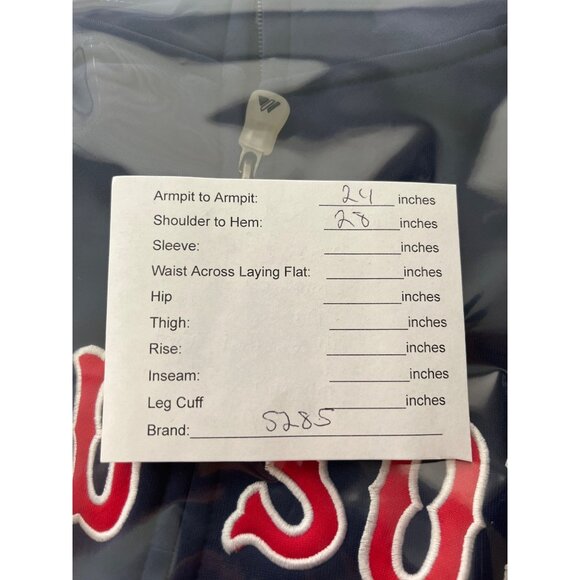 Armpit to Armpit: 24 inches
Shoulder to Hem: 28 inches
Sleeve: inches
Waist Across Laying Flat: inches
Hip inches
Thigh: inches
Rise: inches
Inseam: inches
Leg Cuff inches
Brand: 5285
SO